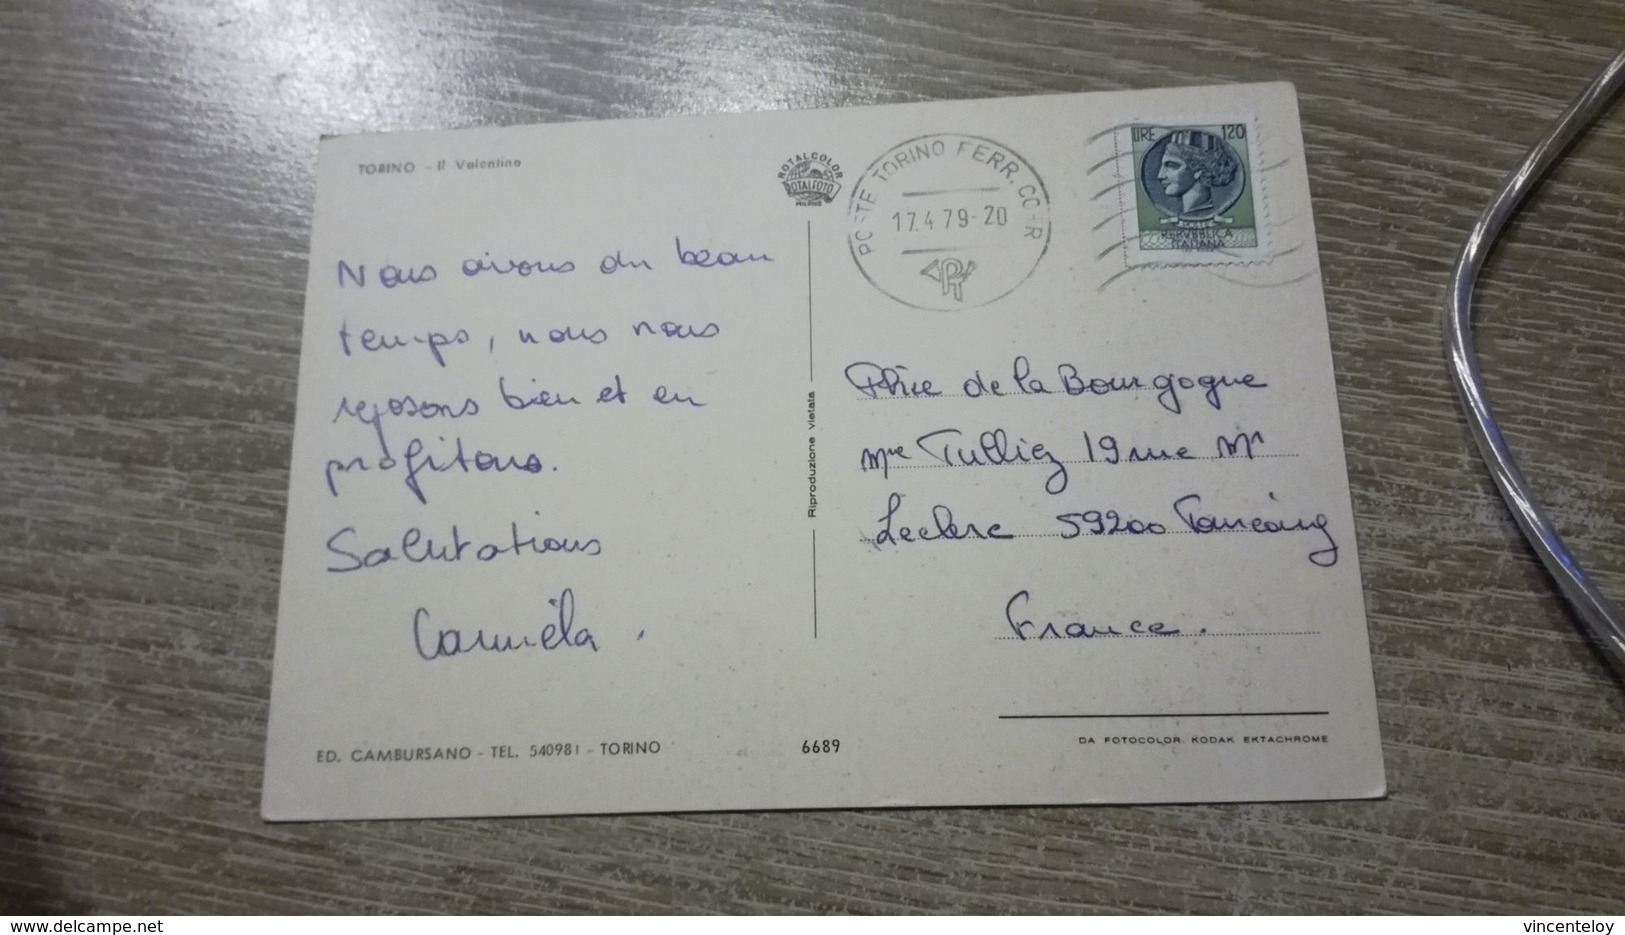 TORINO - Il Valentino
ROTALCOLOR
ROTALFOTO
MILANO
POSTE TORINO FERR. CORR
17.4 79-20
LIRE 120
REPVBBLICA
ITALIANA
Nous avons du beau
temps, nous nous
reposons bien et en
profitons.
Salutations
Carméla.
Riproduzione vietata
Phie de la Bourgogne
Mme Tulliez 19 rue Mal
Leclerc 59200 Tourcoing
France.
ED. CAMBURSANO - TEL. 540981 - TORINO
6689
DA FOTOCOLOR KODAK EKTACHROME
delcampe.net
vincenteloy